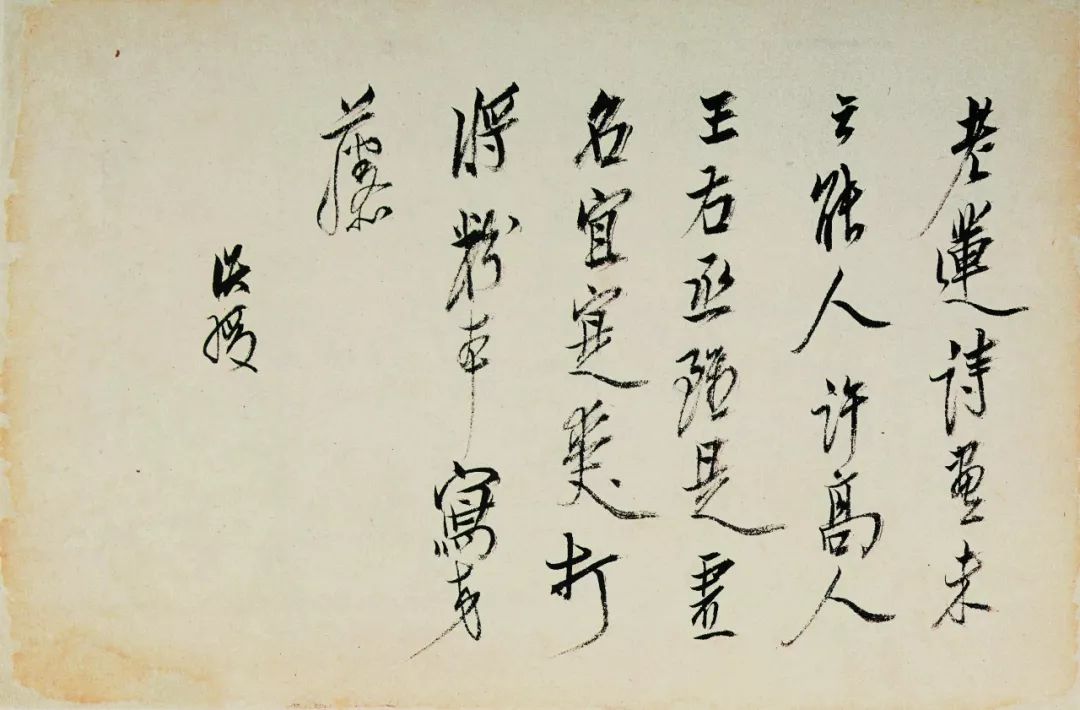 老蓮詩畫未
云能人許高人
王右丞強是虛
名宜寔打
將粉本寫
藤
洪綬